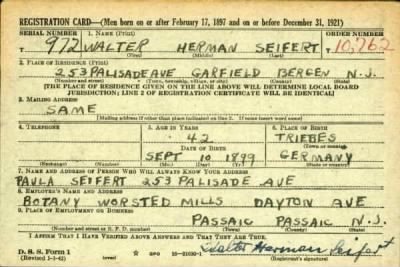 REGISTRATION CARD—(Men born on or after February 17, 1897 and on or before December 31, 1921)
SERIAL NUMBER 1. NAME (Print) ORDER NUMBER
972 WALTER HERMAN SEIFERT T10,762
(First) (Middle) (Last)
2. PLACE OF RESIDENCE (Print)
253 PALISADE AVE GARFIELD BERGEN N.J.
(Number and street) (Town, township, village, or city) (County) (State)
[THE PLACE OF RESIDENCE GIVEN ON THE LINE ABOVE WILL DETERMINE LOCAL BOARD
JURISDICTION; LINE 2 OF REGISTRATION CERTIFICATE WILL BE IDENTICAL]
3. MAILING ADDRESS
SAME
[Mailing address if other than place indicated on line 2. If same insert word same]
4. TELEPHONE 5. AGE IN YEARS 6. PLACE OF BIRTH
42 TRIEBES
DATE OF BIRTH (Town or county)
SEPT 10 1899 GERMANY
(Exchange) (Number) (Mo.) (Day) (Yr.) (State or country)
7. NAME AND ADDRESS OF PERSON WHO WILL ALWAYS KNOW YOUR ADDRESS
PAULA SEIFERT 253 PALISADE AVE
8. EMPLOYER'S NAME AND ADDRESS
BOTANY WORSTED MILLS DAYTON AVE
9. PLACE OF EMPLOYMENT OR BUSINESS
PASSAIC PASSAIC N.J.
(Number and street or R. F. D. number) (Town) (County) (State)
I AFFIRM THAT I HAVE VERIFIED ABOVE ANSWERS AND THAT THEY ARE TRUE.
D. S. S. Form 1 Walter Herman Seifert
(Revised 1-1-42) (over) GPO 16—21630-1 (Registrant's signature)